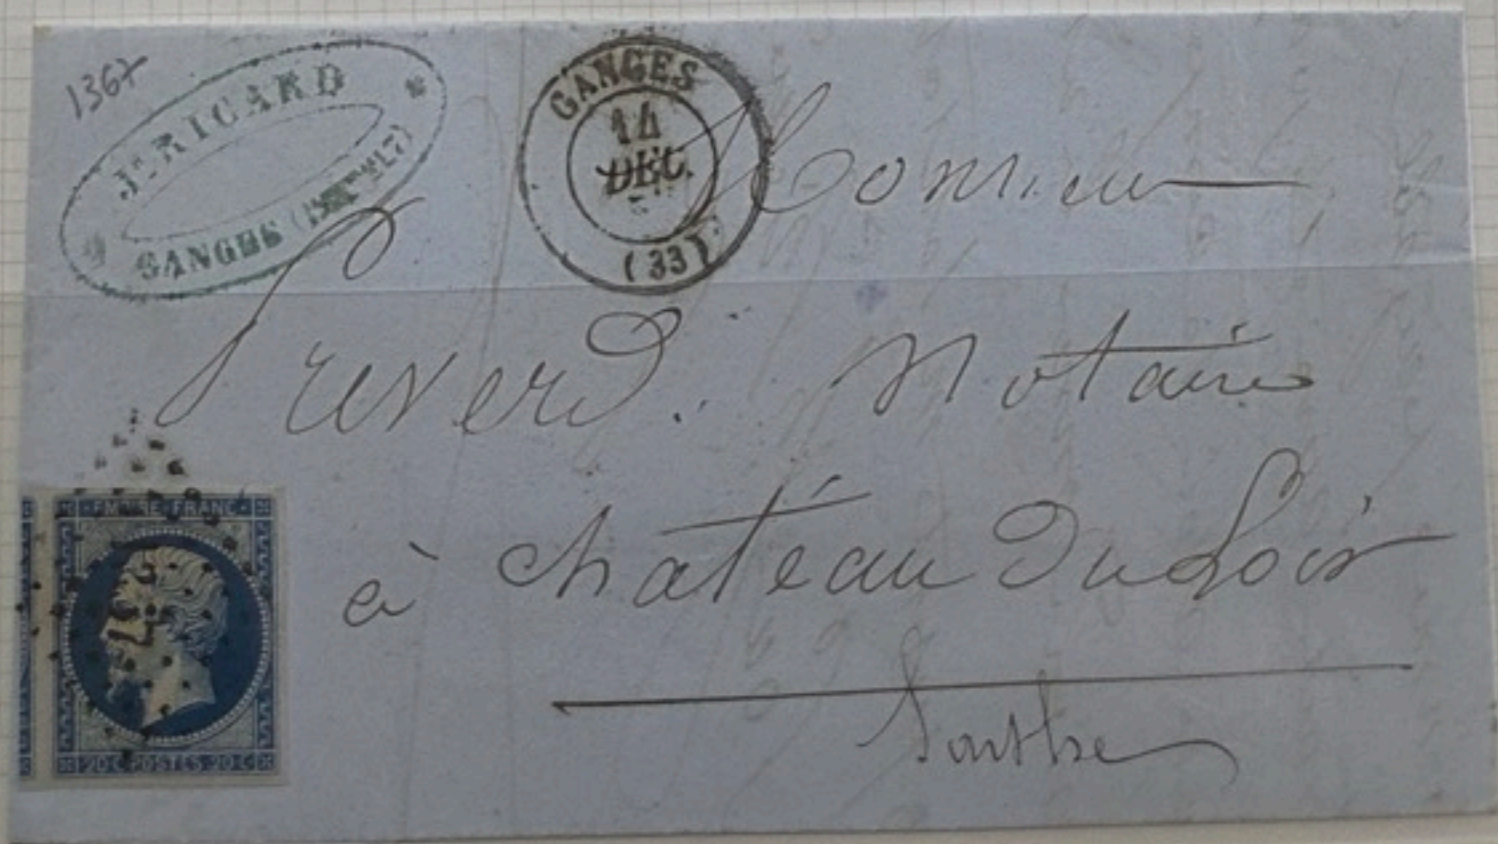 1367
Jn RICARD
GANGES (HERAULT)
GANGES
14
DEC.
(33)
Monsieur
Preverd. Notaire
à Château Du Loir
Sarthe
EMPIRE FRANC
20 C POSTES 20 C